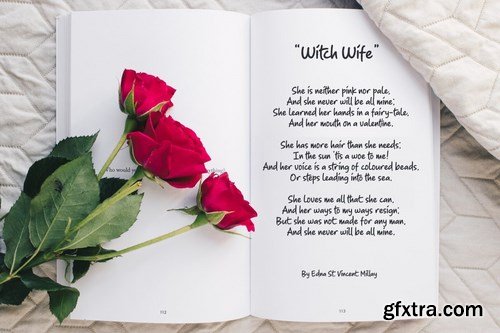 Who would
112
“Witch Wife”
She is neither pink nor pale,
And she never will be all mine;
She learned her hands in a fairy-tale,
And her mouth on a valentine.
She has more hair than she needs;
In the sun ’tis a woe to me!
And her voice is a string of coloured beads,
Or steps leading into the sea.
She loves me all that she can,
And her ways to my ways resign;
But she was not made for any man,
And she never will be all mine.
By Edna St Vincent Millay
113
gfxtra.com